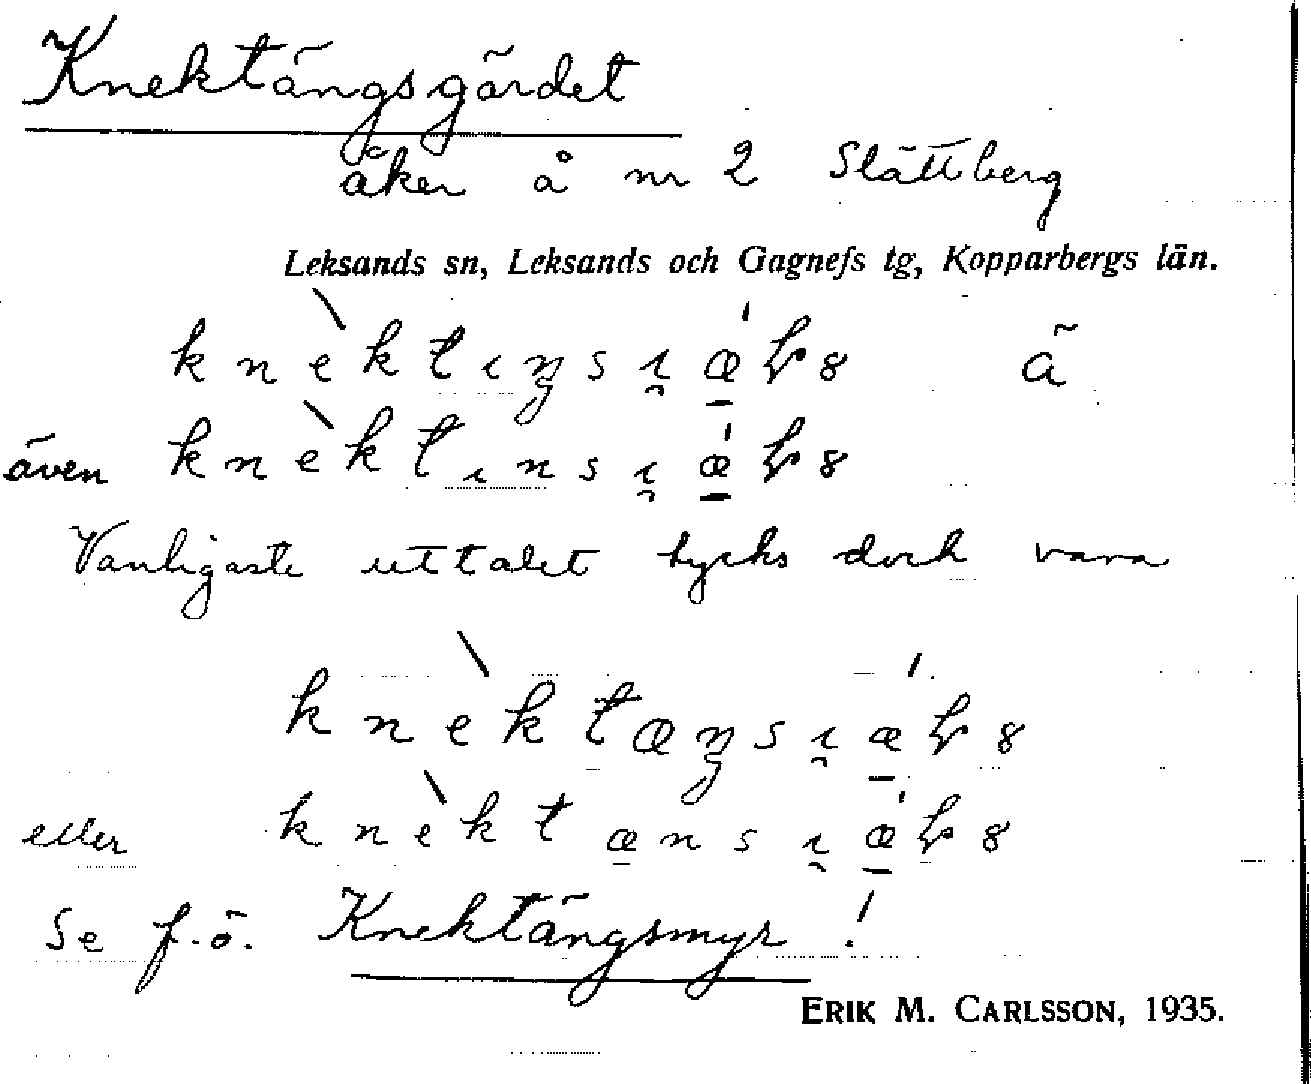 Knektängsgärdet
åker å nr 2 Slättberg
Leksands sn, Leksands och Gagnefs tg, Kopparbergs län.
knèktıŋsı̯ǽ̱ꞗ8 ä
även knèktınsı̯ǽ̱ꞗ8
Vanligaste uttalet tycks dock vara
knèktæŋsı̯ǽ̱ꞗ8
eller knèktænsı̯ǽ̱ꞗ8
Se f.ö. Knektängsmyr!
ERIK M. CARLSSON, 1935.